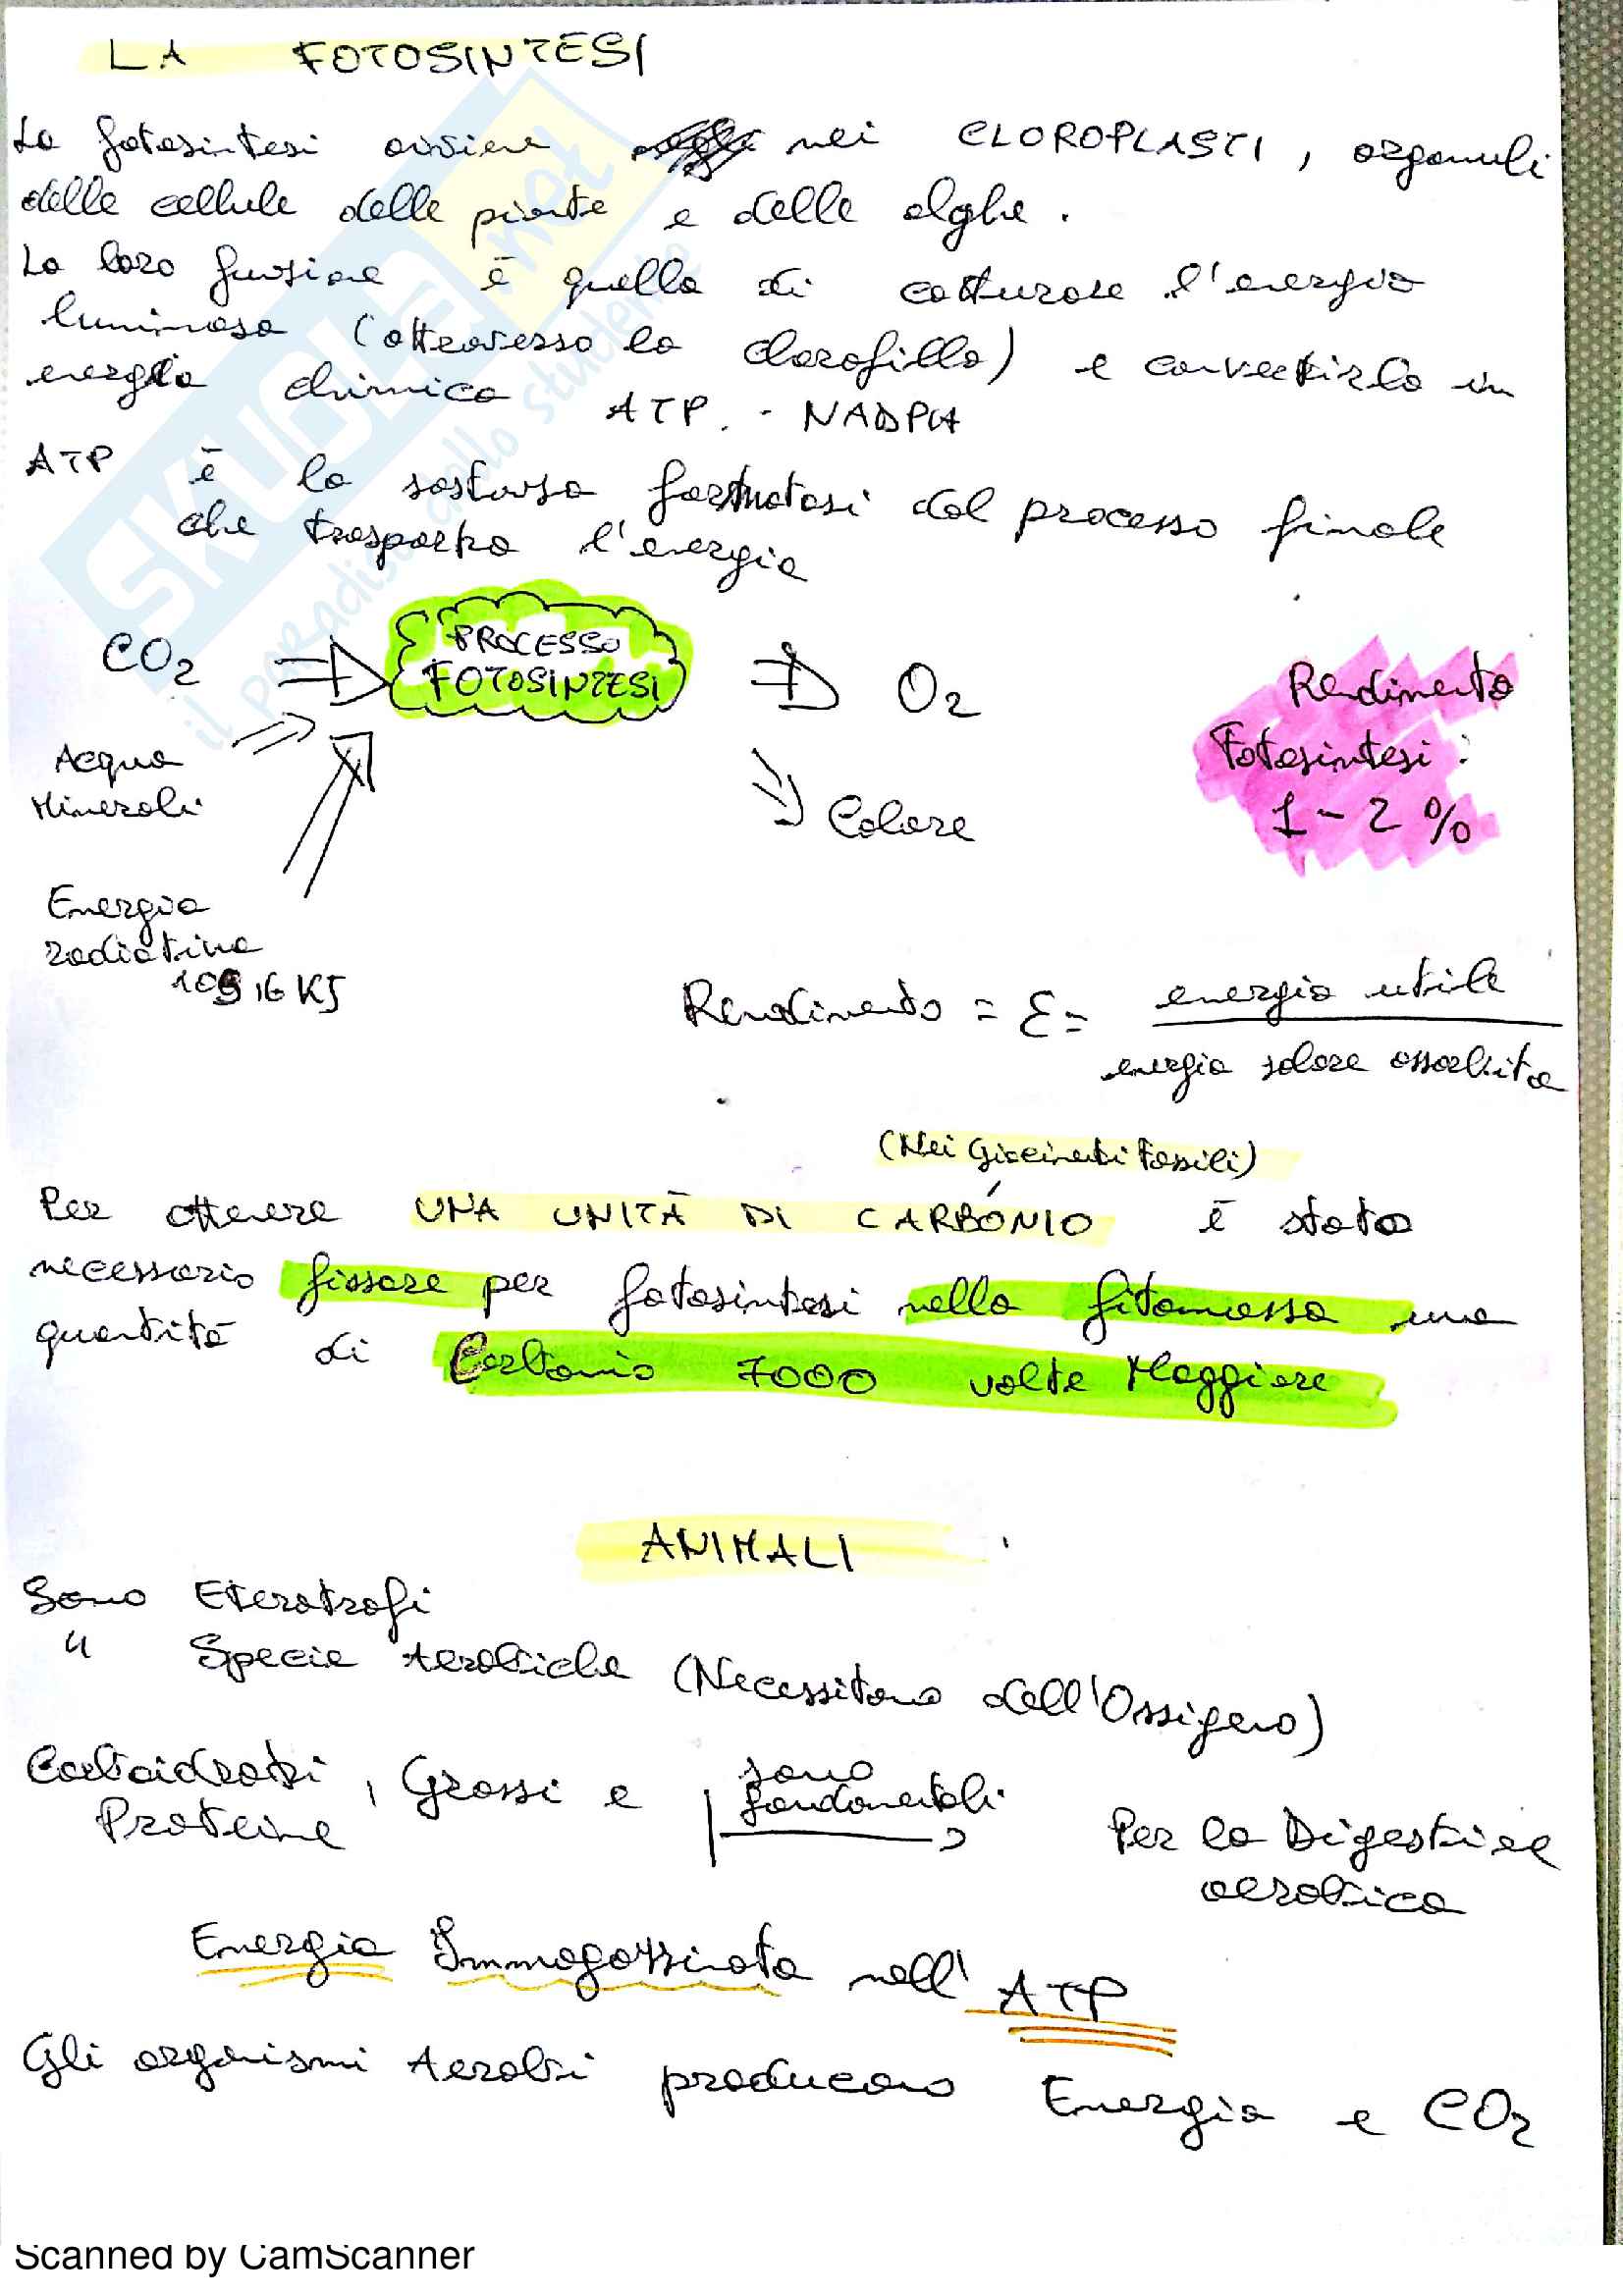 LA FOTOSINTESI
La fotosintesi avviene nei CLOROPLASTI, organuli
delle cellule delle piante e delle alghe.
La loro funzione è quella di catturare l'energia
luminosa (attraverso la clorofilla) e convertirla in
energia chimica ATP. - NADPH
ATP è la sostanza formatasi dal processo finale
che trasporta l'energia
CO2 PROCESSO FOTOSINTESI O2
Acqua
Minerali
Calore
Rendimento
Fotosintesi:
1-2%
Energia
radiativa
KJ
Rendimento = ε = energia utile
energia solare assorbita
(Nei Giacimenti Fossili)
Per ottenere UNA UNITÀ DI CARBONIO è stato
necessario fissare per fotosintesi nella fitomassa una
quantità di Carbonio 7000 volte Maggiore
ANIMALI
Sono Eterotrofi
" Specie Aerobiche (Necessitano dell'Ossigeno)
Carboidrati, Grassi e
Proteine
sono
fondamentali
Per la Digestione
aerobica
Energia Immagazzinata nell'ATP
Gli organismi Aerobi producono Energia e CO2
SKUOLA.net
il paradiso dello studente
Scanned by CamScanner